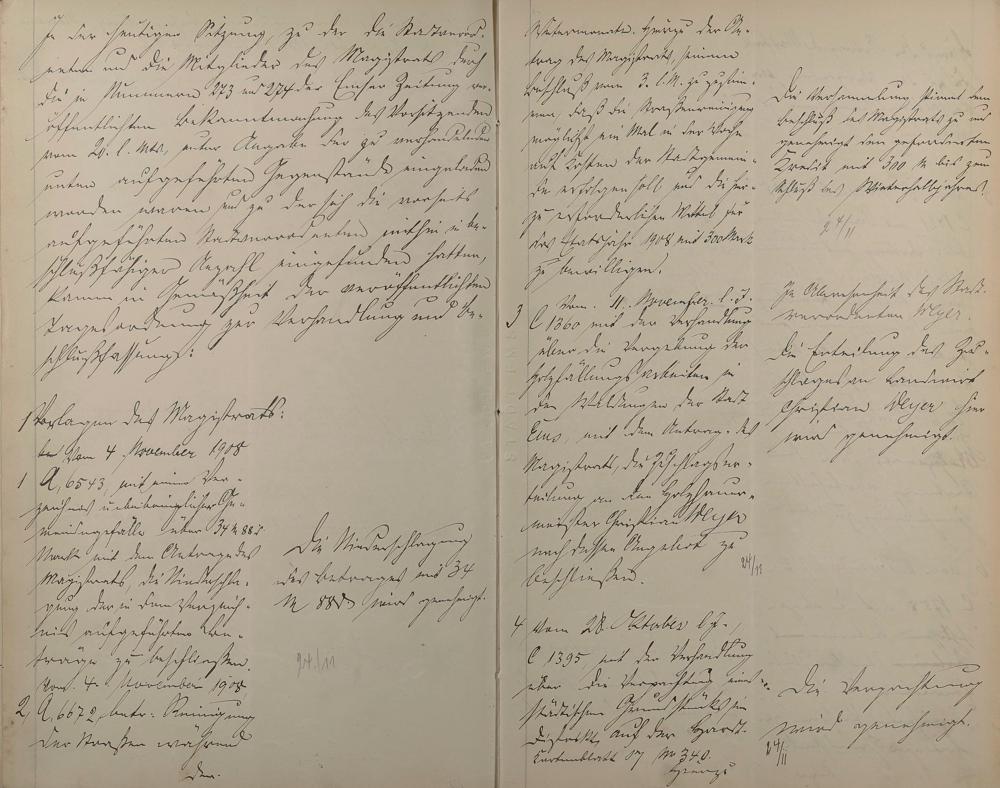 In der heutigen Sitzung, zu der die Stadtverord-
neten und die Mitglieder des Magistrats durch
die in Nummern 273 und 274 der Emser Zeitung ver-
öffentlichten Bekanntmachung des Vorsitzenden
vom 20. l. Mts, unter Angabe der zu verhandelnden
unten aufgeführten Gegenstände eingeladen
worden waren und zu der sich die vorseits
aufgeführten Stadtverordneten mithin in be-
schlußfähiger Anzahl eingefunden hatten,
kamen in Gemäßheit der veröffentlichten
Tagesordnung zur Verhandlung und Be-
schlußfassung:
1 Vorlagen des Magistrats:
Vom 4 November 1908
1 A, 6543, mit einem Ver-
zeichnis unbeibringlicher Ge-
meindegefälle über 34 M 88 d
Mark mit dem Antrage des
Magistrats, die Niederschla-
gung der in dem Verzeich-
nis aufgeführten Be-
träge zu beschließen.
Die Niederschlagung
des Betrages mit 34
M 88 d wird genehmigt.
24./11
Vom 4. November 1908
2, A, 6672, betr: Reinigung
der Straßen während
der
Wintermonate. Hierzu der An-
trag des Magistrats, seinem
Beschluß vom 3. l. M. zu zustim-
men, daß die Straßenreinigung
möglichst ein Mal in der Woche
auf Kosten der Stadtgemein-
de erfolgen soll und die hier-
zu erforderlichen Mittel für
das Etatsjahr 1908 mit 300 Mark
zu bewilligen.
Die Versammlung stimmt dem
Beschluß des Magistrats zu und
genehmigt den geforderten
Kredit mit 300 M bis zum
Schluß des Winterhalbjahres.
24/11
3 Vom 11. November l. J.
C 1360 mit der Verhandlung
über die Vergebung der
Holzfällungsarbeiten in
den Waldungen der Stadt
Ems, mit dem Antrag des
Magistrats, die Zuschlagser-
teilung an den Holzhauer-
meister Christian Weyer
nach dessen Angebot zu
beschließen.
In Abwesenheit des Stadt-
verordneten Weyer.
Die Erteilung des Zu-
schlages an Landwirt
Christian Weyer hier
wird genehmigt.
24/11
4 Vom 28. Oktober l J.,
C 1395, mit der Verhandlung
über die Verpachtung eines
städtischen Grundstücks im
Distrikt auf der Hardt.
Kartenblatt 57 No 340.
Hierzu
Die Verpachtung
wird genehmigt.
24/11